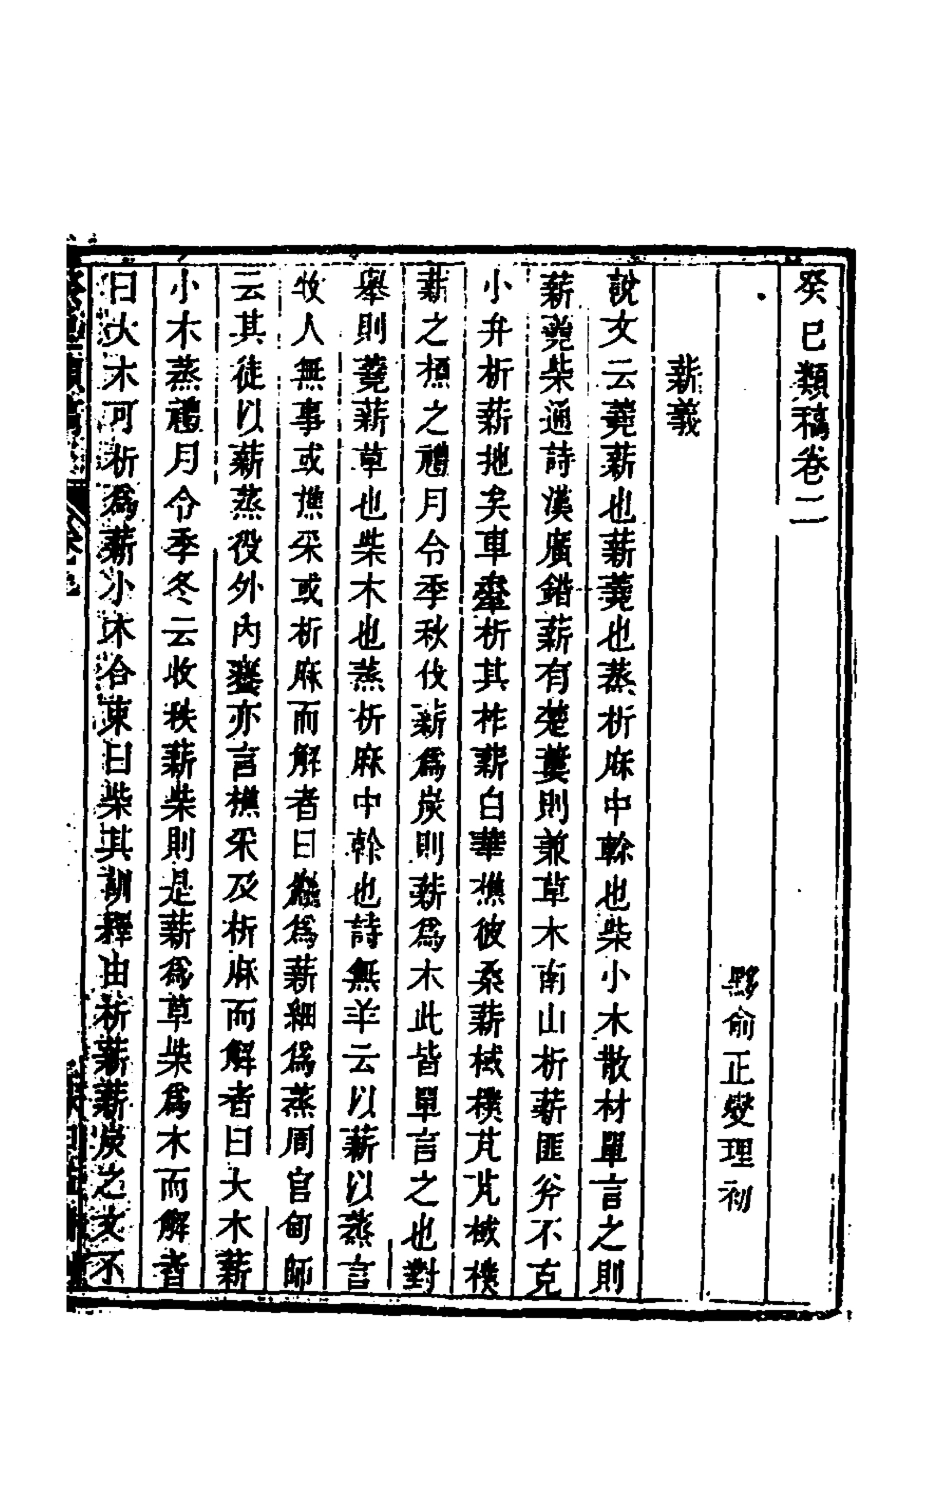 癸巳類稿卷二
黟俞正燮理初
薪義
說文云蕘薪也薪蕘也蒸析麻中榦也柴小木散材單言之則
薪蕘柴通詩漢廣錯薪有楚蔞則兼草木南山析薪匪斧不克
小弁析薪扡矣車舝析其柞薪白華樵彼桑薪棫樸芃芃棫樸
薪之槱之禮月令季秋伐薪爲炭則薪爲木此皆單言之也對
舉則蕘薪草也柴木也蒸析麻中榦也詩無羊云以薪以蒸言
牧人無事或樵采或析麻而解者曰麤爲薪細爲蒸周官甸師
云其徒以薪蒸役外內饔亦言樵采及析麻而解者曰大木薪
小木蒸禮月令季冬云收秩薪柴則是薪爲草柴爲木而解者
曰大木可析爲薪小木合束曰柴其訓釋由析薪薪炭之文不